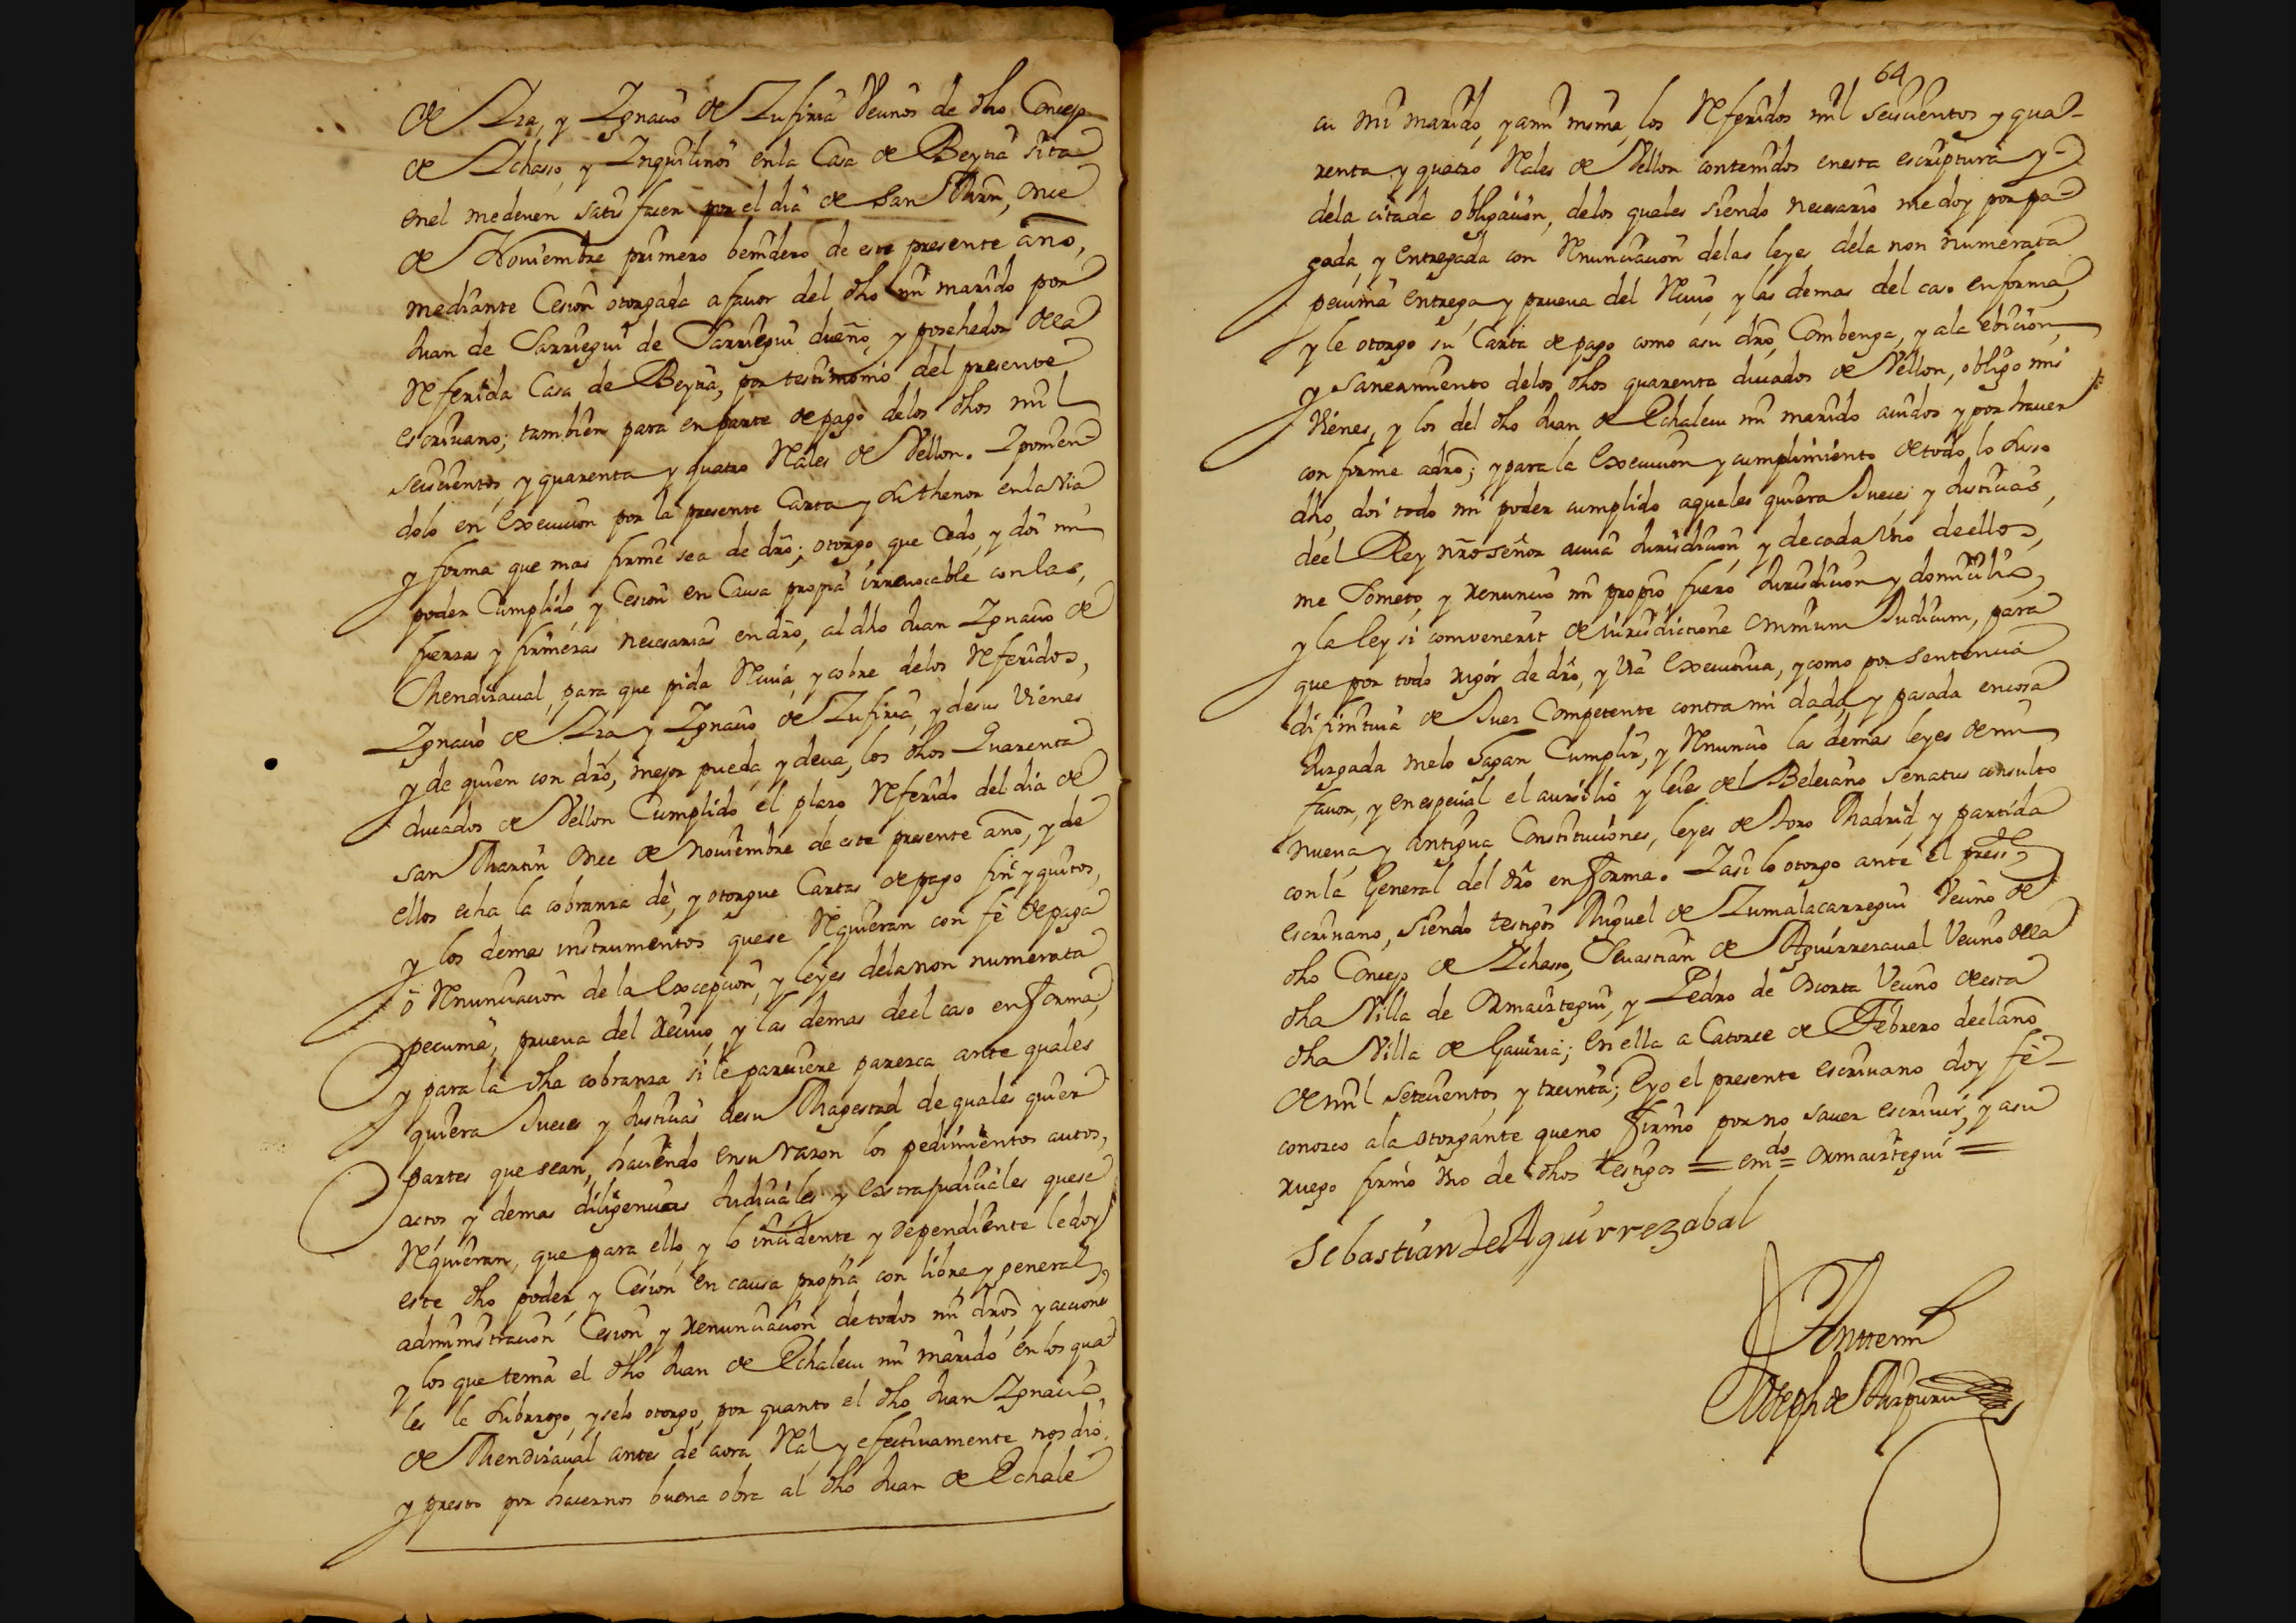 de Ysa, y Ygnacio de Zufiria Vecinos de dho Concejo
de Ychasso, y Ynquilinos enla Casa de Beytia sita
enel me deven satisfacer por el dia de San Martin, once
de Noviembre primero benidero de este presente año,
mediante Cesion otorgada a favor del dho mi marido por
Juan de Sarriegui de Sarriegui dueño, y posehedor dela
Referida Casa de Beytia, por testimonio del presente
escrivano; tambien para en parte de pago delos dhos mil
seiscientos y quarenta y quatro Rales de Vellon. Y ponien-
dolo en execucion por la presente Carta y su thenor enla via
y forma que mas firme sea de dro; otorgo que cedo, y doi mi
poder Cumplido, y Cesion en Causa propia irrevocable con las
fuerzas y firmezas necesarias en dro, al dho Juan Ygnacio de
Mendizaval, para que pida Reciva, y cobre delos Referidos,
Ygnacio de Ysa y Ygnacio de Zufiria, y desus vienes
y de quien con dro, mejor pueda, y deva, los dhos Quarenta
ducados de Vellon Cumplido el plazo Referido del dia de
san Martin once de noviembre de este presente año, y de
ellos echa la cobranza dè, y otorgue Cartas de pago finiquitos,
y los demas instrumentos quese Requieran con fè de paga
ò Renunciacion de la excepcion, y leyes dela non numerata
pecunia, prueva del recivo, y las demas deel caso en forma,
y para la dha cobranza si le pareciere parezca ante quales
quiera Jueces y Justicias desu Magestad de quales quier
partes que sean, haciendo ensu razon los pedimientos autos,
actos y demas diligencias Judiciales y extrajudiciales quese
Requieran, que para ello, y lo incidente y dependiente le doy
este dho poder, y Cesion en causa propia con libre y general
administracion Cesion y renunciacion de todos mis dros, y acciones
y los que tenia el dho Juan de Echalecu mi marido en los qua-
les le subrrogo, y selo otorgo, por quanto el dho Juan Ygnacio
de Mendizaval antes de aora Ral y efectivamente nos dio,
y presto por hacernos buena obra al dho Juan de Echale
64
cu mi marido, y ami misma, los Referidos mil seiscientos y qua-
renta y quatro Rales de Vellon contenidos enesta escriptura y
dela citada obligacion, delos quales siendo necesario me doy por pa-
gada, y entregada con Renunciacion delas leyes dela non numerata
pecunia entrega, y prueva del Recivo, y las demas del caso en forma,
y le otorgo su Carta de pago como asu dro, Combenga, y ala ebicion,
y saneamiento delos dhos quarenta ducados de Vellon, obligo mis
vienes, y los del dho Juan de Echalecu mi marido avidos y por haver
conforme adro; y para la execucion y cumplimiento de todo lo suso
dho, doi todo mi poder cumplido aquales quiera Jueces, y Justicias,
deel Rey nro señor acuia Jurisdicion, y decada uno deellos,
me someto, y renuncio mi propio fuero Jurisdicion y domicilio,
y la ley si convenerit de iurisdictione omnium Judicum, para
que por todo rigor de dro, y via executiva, y como por sentencia
difinitiva de Juez Competente contra mi dada, y pasada encosa
Juzgada melo hagan Cumplir, y Renuncio las demas leyes de mi
favor, y en especial el auxilio y leies del Beleiano senatus consulto
nueva y antigua Constituciones, leyes de toro Madrid, y partida
con la General del dro en forma. Y asi lo otorgo ante el press.te
escrivano, siendo testigos Miguel de Zumalacarregui Vecino de
dho Concejo de Ychasso, Sevastian de Aguirrezaval Vecino dela
dha Villa de Ormaiztegui, y Pedro de Oiorta Vecino de esta
dha Villa de Gaviria; en ella a Catorce de Febrero del año
de mil setecientos, y treinta; Eyo el presente escrivano doy fè
conozco ala otorgante que no firmò por no saver escrivir, y asu
ruego firmò uno de dhos testigos = em.do = ormaiztegui =
Sebastian de Aguirrezabal
Antemi
Joseph de Aizpuru